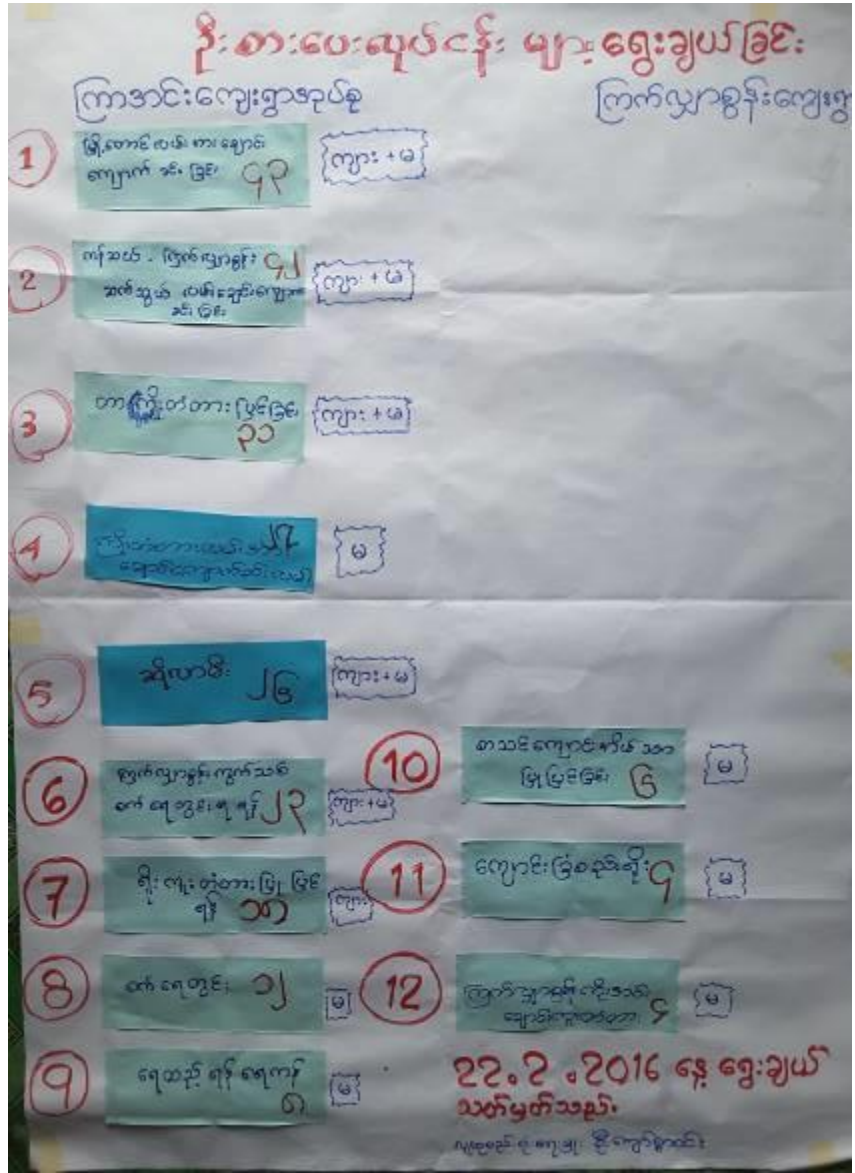 ဦးစားပေးလုပ်ငန်း များရွေးချယ်ခြင်း
ကြာအင်းကျေးရွာအုပ်စု
ကြက်လျှာစွန်းကျေးရွာ
1
မြို့တောင်လမ်း
ကျောက်ခင်းခြင်း ၄၃
{ကျား + မ}
2
ကန်ဆယ် - ကြက်လျှာစွန်း ၄၂
ဆက်သွယ် လမ်း
ခင်းခြင်း
{ကျား + မ}
3
တံတားပြင်ခြင်း
၃၁
{ကျား + မ}
4
{မ}
5
ဆိုလာမီး ၂၆
{ကျား + မ}
6
ကြက်လျှာစွန်းကွက်သစ်
စက်ရေတွင်းရရန် ၂၃
{ကျား + မ}
7
ရိုးကူးတံတားပြုပြင်
ရန် ၁၈
{ကျား}
8
စက်ရေတွင်း ၁၂
{မ}
9
ရေထည့်ရန် ရေကန်
၈
{မ}
10
စာသင်ကျောင်း
ပြုပြင်ခြင်း ၆
{မ}
11
ကျောင်းခြံစည်းရိုး ၄
{မ}
12
ကြက်လျှာစွန်း
၄
{မ}
22.2.2016 နေ့ ရွေးချယ်
သတ်မှတ်သည်။